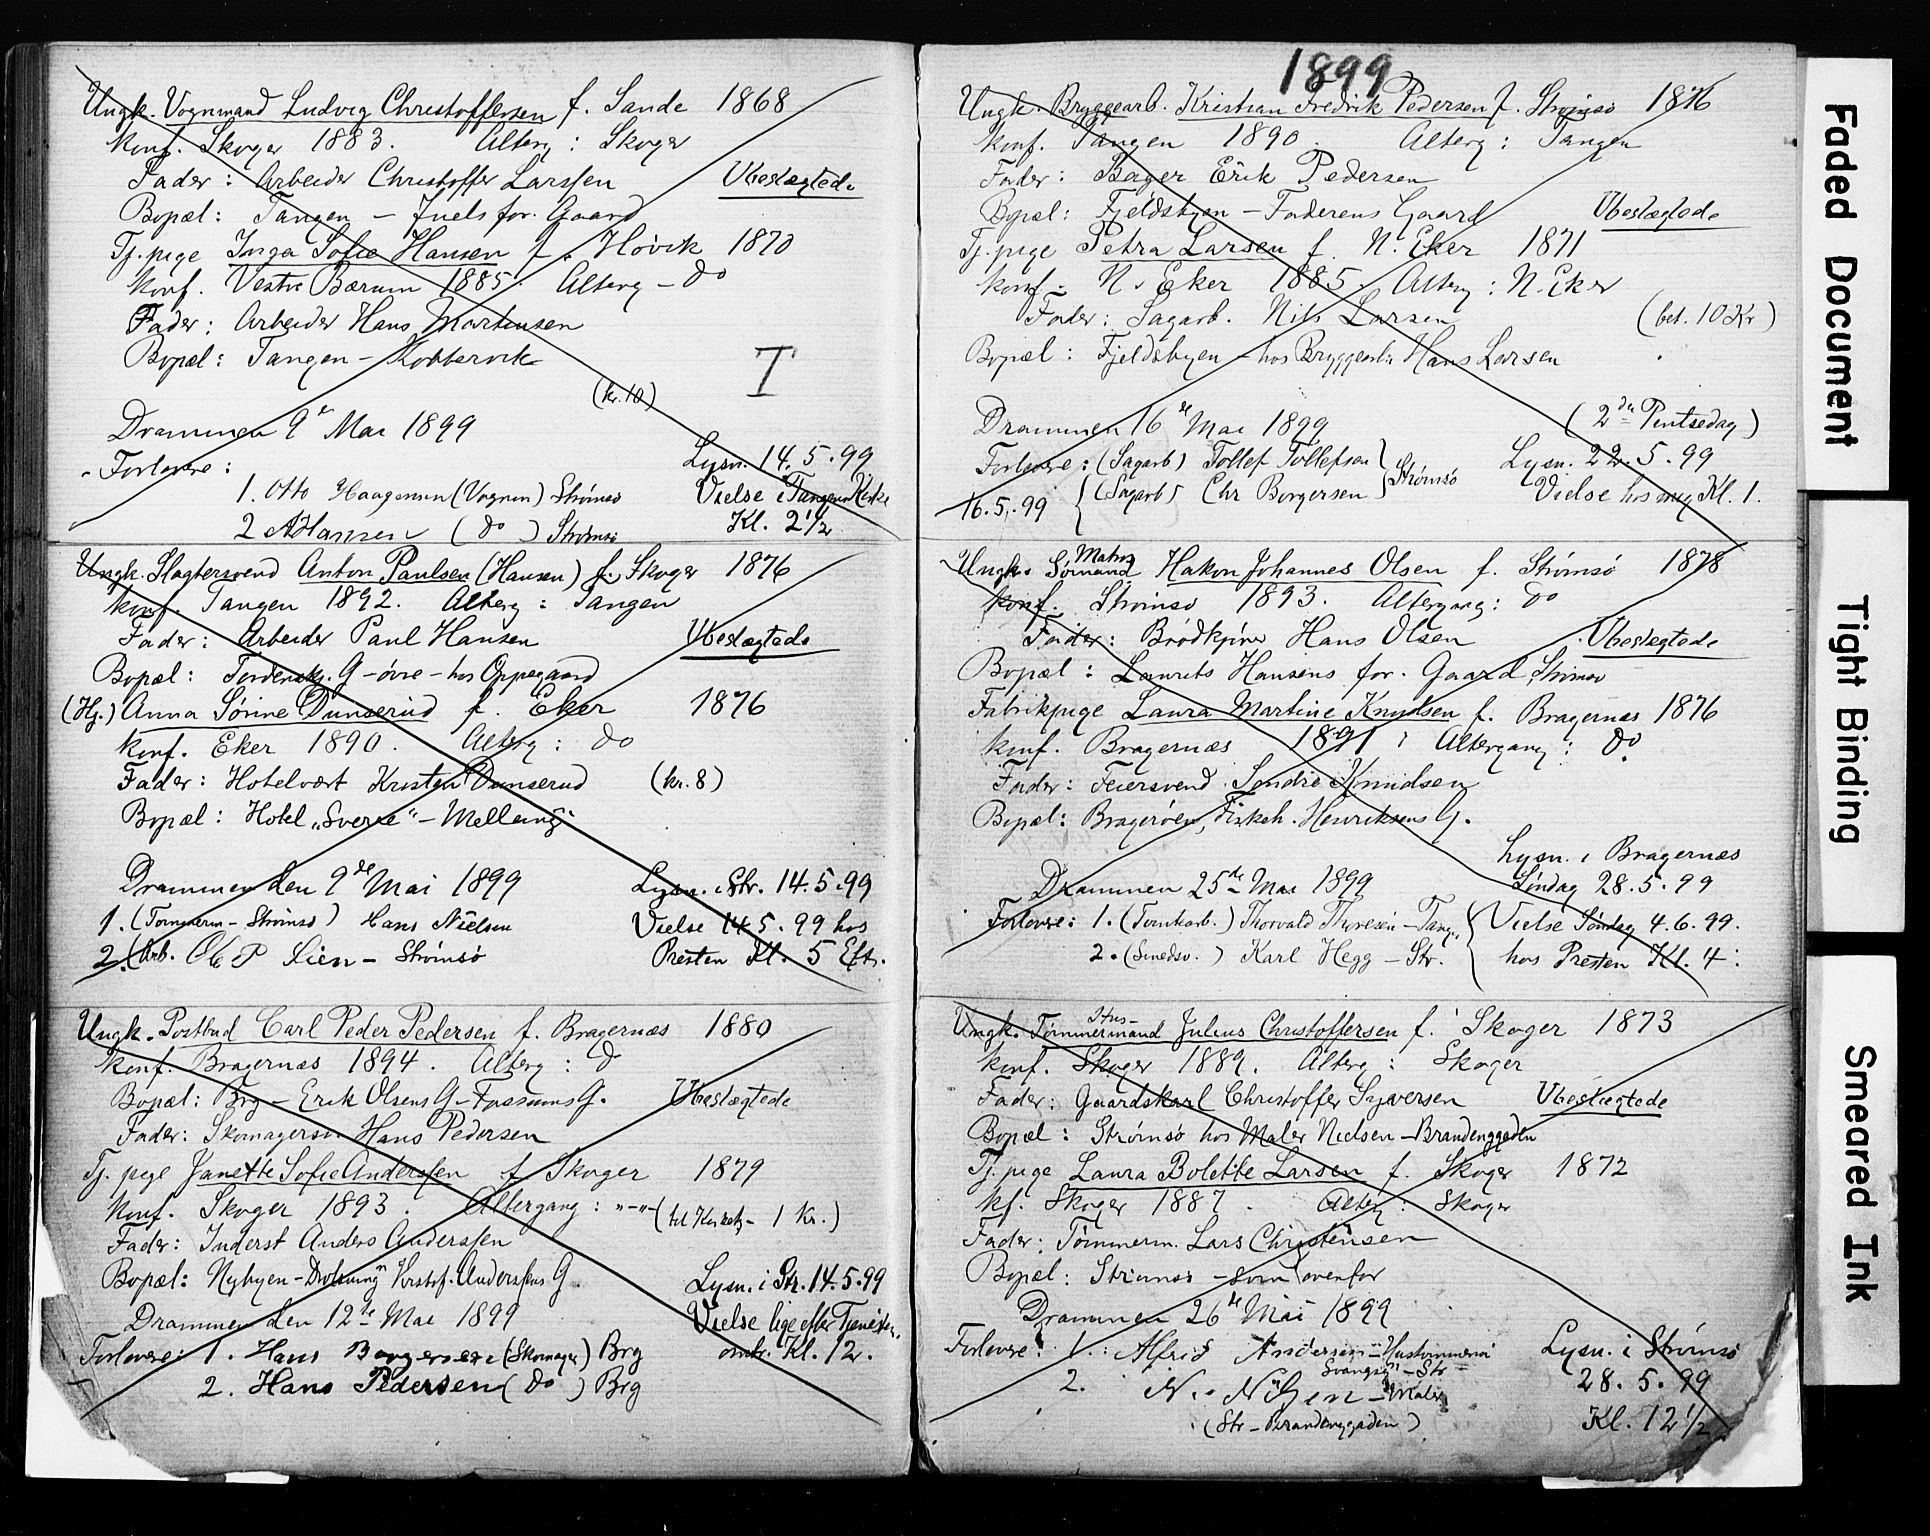 Ungk. Vognmand Ludvig Christoffersen f. Sande 1868
konf. Skoger 1883. Alterg: Skoger
Fader: Arbeider Christoffer Larssen Ubeslægtede
Bopæl: Tangen - Juels for. Gaard
Tj. pige Inga Sofie Hansen f. Høvik 1870
konf. Vestre Bærum 1885. Alterg - do
Fader: Arbeider Hans Martinsen
Bopæl: Tangen - Kobbervik
I
(kr. 10)
Drammen 9de Mai 1899
Forlovere: Lysn. 14.5.99
1. Otto Haagensen (Vognm) Strømsø Vielse i Tangen Kirke
2 A Hansen (do) Strømsø Kl. 2 1/2
Ungk. Slagtersvend Anton Paulsen (Hansen) f. Skoger 1876
konf. Tangen 1892. Alterg: Tangen
Fader: Arbeider Paul Hansen Ubeslægtede
Bopæl: Tordenskj. G - øvre - hos Oppegaard
(Hj.) Anna Sørine Dunserud f. Eker 1876
konf. Eker 1890. Alterg: do
Fader: Hotelvært Kristen Dunserud (kr. 8)
Bopæl: Hotel „Sverre" - Mellemg
Drammen den 9de Mai 1899 Lysn. i Str. 14.5.99
1. (Tømmerm - Strømsø) Hans Nielsen Vielse 14.5.99 hos
2. (Arb. Ole P Lien - Strømsø Presten Kl. 5 Eft.
Ungk. Postbud Carl Peder Pedersen f. Bragernæs 1880
konf. Bragernæs 1894. Alterg: do
Bopæl: Brg - Erik Olsens G - Fossums G. Ubeslægtede
Fader: Skomagersv. Hans Pedersen
Tj. pige Janette Sofie Anderssen f. Skoger 1879
konf. Skoger 1893. Altergang: „-"- (til Kirketj - 1 Kr.)
Fader: Inderst Anders Anderssen
Bopæl: Nybyen - Vorstof. Anderssens G. Lysn. i Str. 14.5.99
Drammen den 12te Mai 1899 Vielse lige efter Tjenesten.
Forlovere: 1. Hans Borgersen (Skomager) Brg omtr. Kl. 12.
2. Hans Pedersen (do) Brg
1899
Ungk. Bryggearb. Kristian Fredrik Pedersen f. Strømsø 1876
konf. Tangen 1890. Alterg: Tangen
Fader: Bager Erik Pedersen
Bopæl: Fjeldsbyen - Faderens Gaard Ubeslægtede
Tj. pige Petra Larsen f. N. Eker 1871
konf. N. Eker 1885. Alterg: N. Eker
Fader: Sagarb. Nils Larsen (bet. 10 Kr)
Bopæl: Fjeldsbyen - hos Bryggearb. Hans Larsen
Drammen 16de Mai 1899 (2den Pintsedag)
Forlovere: (Sagarb) Tollef Tollefsen } Strømsø Lysn. 22.5.99
16.5.99 { (Sagarb) Chr Borgersen Vielse hos mig Kl. 1.
Matros
Ungk. Sømand Hakon Johannes Olsen f. Strømsø 1878
konf. Strømsø 1893. Altergang: do
Fader: Brødkjører Hans Olsen Ubeslægtede
Bopæl: Laurits Hansens for. Gaard, Strømsø
Fabrikpige Laura Martine Knudsen f. Bragernæs 1876
konf. Bragernæs 1891. Altergang: do.
Fader: Feiersvend Sondre Knudsen
Bopæl: Bragerøen, Fiskeh. Henriksens G.
Lysn. i Bragernæs
Drammen 25de Mai 1899 Søndag 28.5.99
Forlovere: 1. (Tomtearb.) Thorvald Thoresen - Tang. { Vielse Søndag 4.6.99.
2. (Smedsv.) Karl Hegg - Str. hos Presten Kl. 4.
Hus-
Ungk. Tømmermand Julius Christoffersen f. Skoger 1873
konf. Skoger 1889. Alterg: Skoger
Fader: Gaardskarl Christoffer Syversen Ubeslægtede
Bopæl: Strømsø hos Maler Nielsen - Brandenggaden
Tj. pige Laura Bolette Larsen f. Skoger 1872
kf. Skoger 1887. Alterg: Skoger
Fader: Tømmerm. Lars Christensen
Bopæl: Strømsø - som ovenfor
Drammen 26de Mai 1899
Forlovere: 1. Alfrid Andersen - Lysn. i Strømsø
Svangsg. - Str
2. N. Nilsen - Maler 28.5.99
(Str - Brandenggaden) Kl. 12 1/2
Faded Document
Tight Binding
Smeared Ink